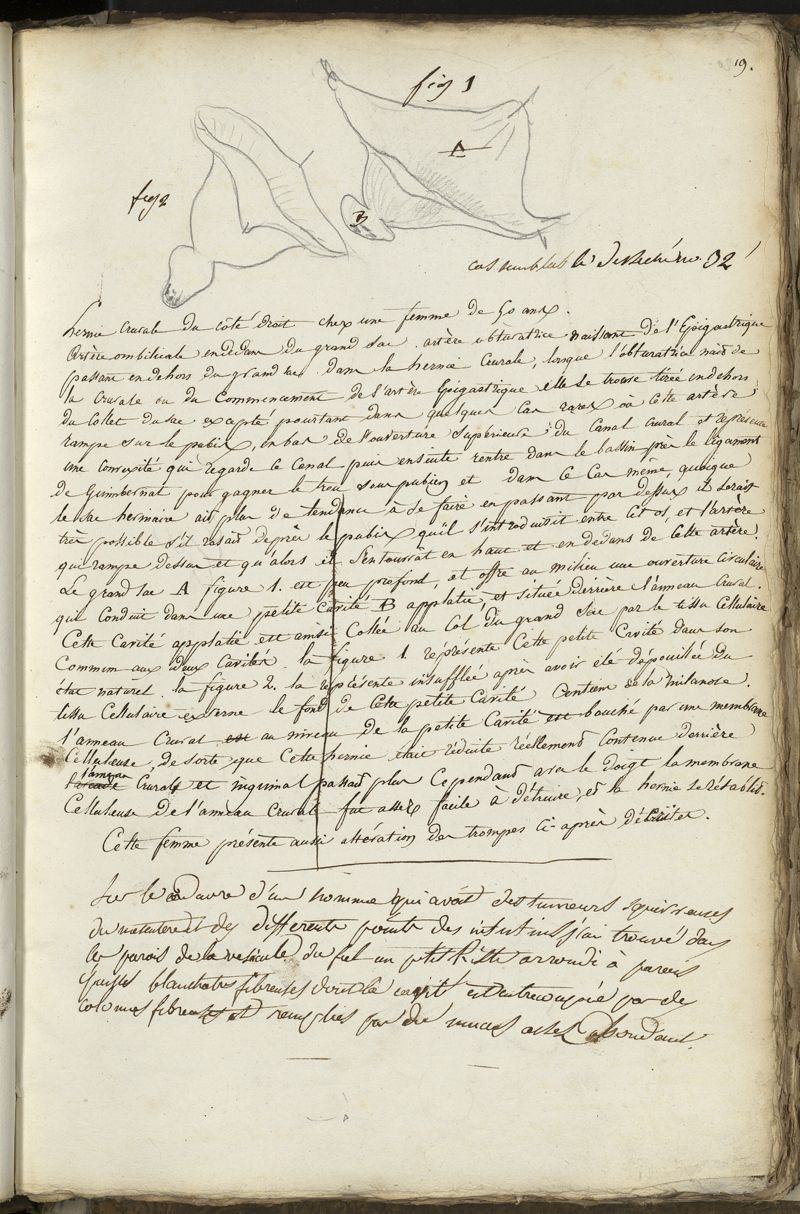 19.
fig 1
A
fig 2
B
cas semblable 32
hernie crurale du côté droit chez une femme de 50 ans.
artère ombilicale endedans du grand sac. artère obturatrice naissant de l'Epigastrique
passant endehors du grand sac. dans la hernie Crurale, lorsque l'obturatrice nait de
la crurale ou du Commencement de l'artère Epigastrique elle se trouve tirée endehors
du Collet du sac excepté pourtant dans quelques Cas rares où cette artère
rampe sur le pubis, en bas de l'ouverture Superieure du Canal Crural et représente
une Convexité qui regarde le Canal puis ensuite rentre dans le bassin près le ligament
de Gimbernat pour gagner le trou souspubien et dans ce Cas même, quoique
le sac herniaire ait plus de tendance à se faire en passant par dessus il serait
très possible s'il rasait de près le pubis qu'il s'introduisit entre cet os et l'artère
qui rampe dessus et qu'alors il s'entourrât en haut et en dedans de Cette artère.
Le grand sac A figure 1. est peu profond, et offre au milieu une ouverture Circulaire
qui Conduit dans une petite Cavité B applatie, et située derrière l'anneau Crural.
Cette Cavité applatie est ainsi Collée au Col du grand Sac par le tissu Cellulaire
Commun aux deux Cavités. la figure 1. représente Cette petite Cavité dans son
état naturel. la figure 2. la représente insufflée après avoir été dépouillée du
tissu Cellulaire externe le fond de Cette petite Cavité Contient de la mélanose.
l'anneau Crural est au niveau de la petite Cavité est bouché par une membrane
Celluleuse, de sorte que Cette hernie était réduite réellement Contenue derrière
l'anneau
Crurale et inguinal passait plus Cependant avec le doigt la membrane
Celluleuse de l'anneau Crural fut assez facile à détruire, et la hernie se rétablit.
Cette femme présente aussi altération des trompes Ci-après décrites.
Sur le cadavre d'un homme qui avait des tumeurs squirreuses
du mesentere et des differents points des intestins j'ai trouvé dans
les parois de la vesicule du fiel un petit Kiste arrondi à parois
blanchatres fibreuses dont la cavité est entrecoupée par des
colonnes fibreuses et remplies par du mucus assez abondant.